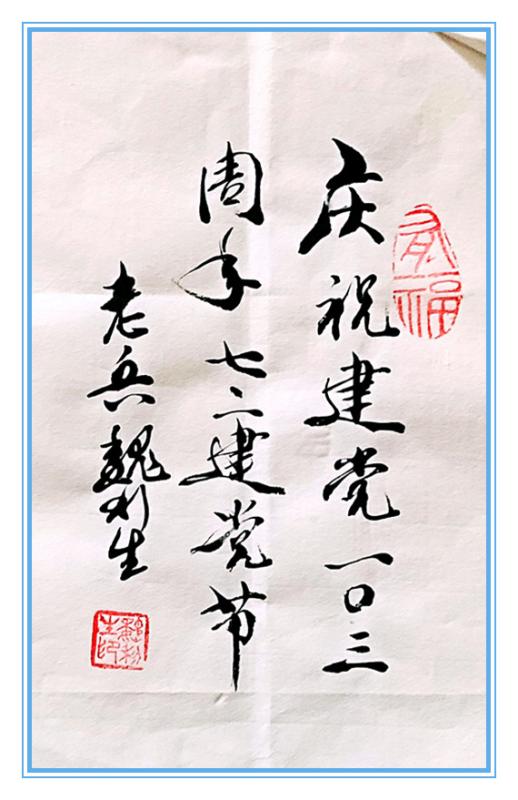 庆祝建党一〇三
周年七二建党节
老兵魏利生